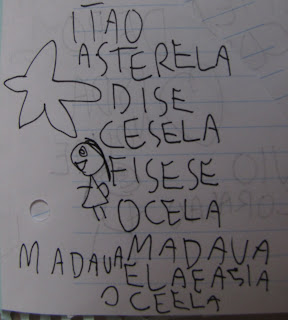 ITAO
ASTERELA
DISE
CESELA
FISESE
OCELA
MADAVA MADAVA
ELAFASIA
OCEELA